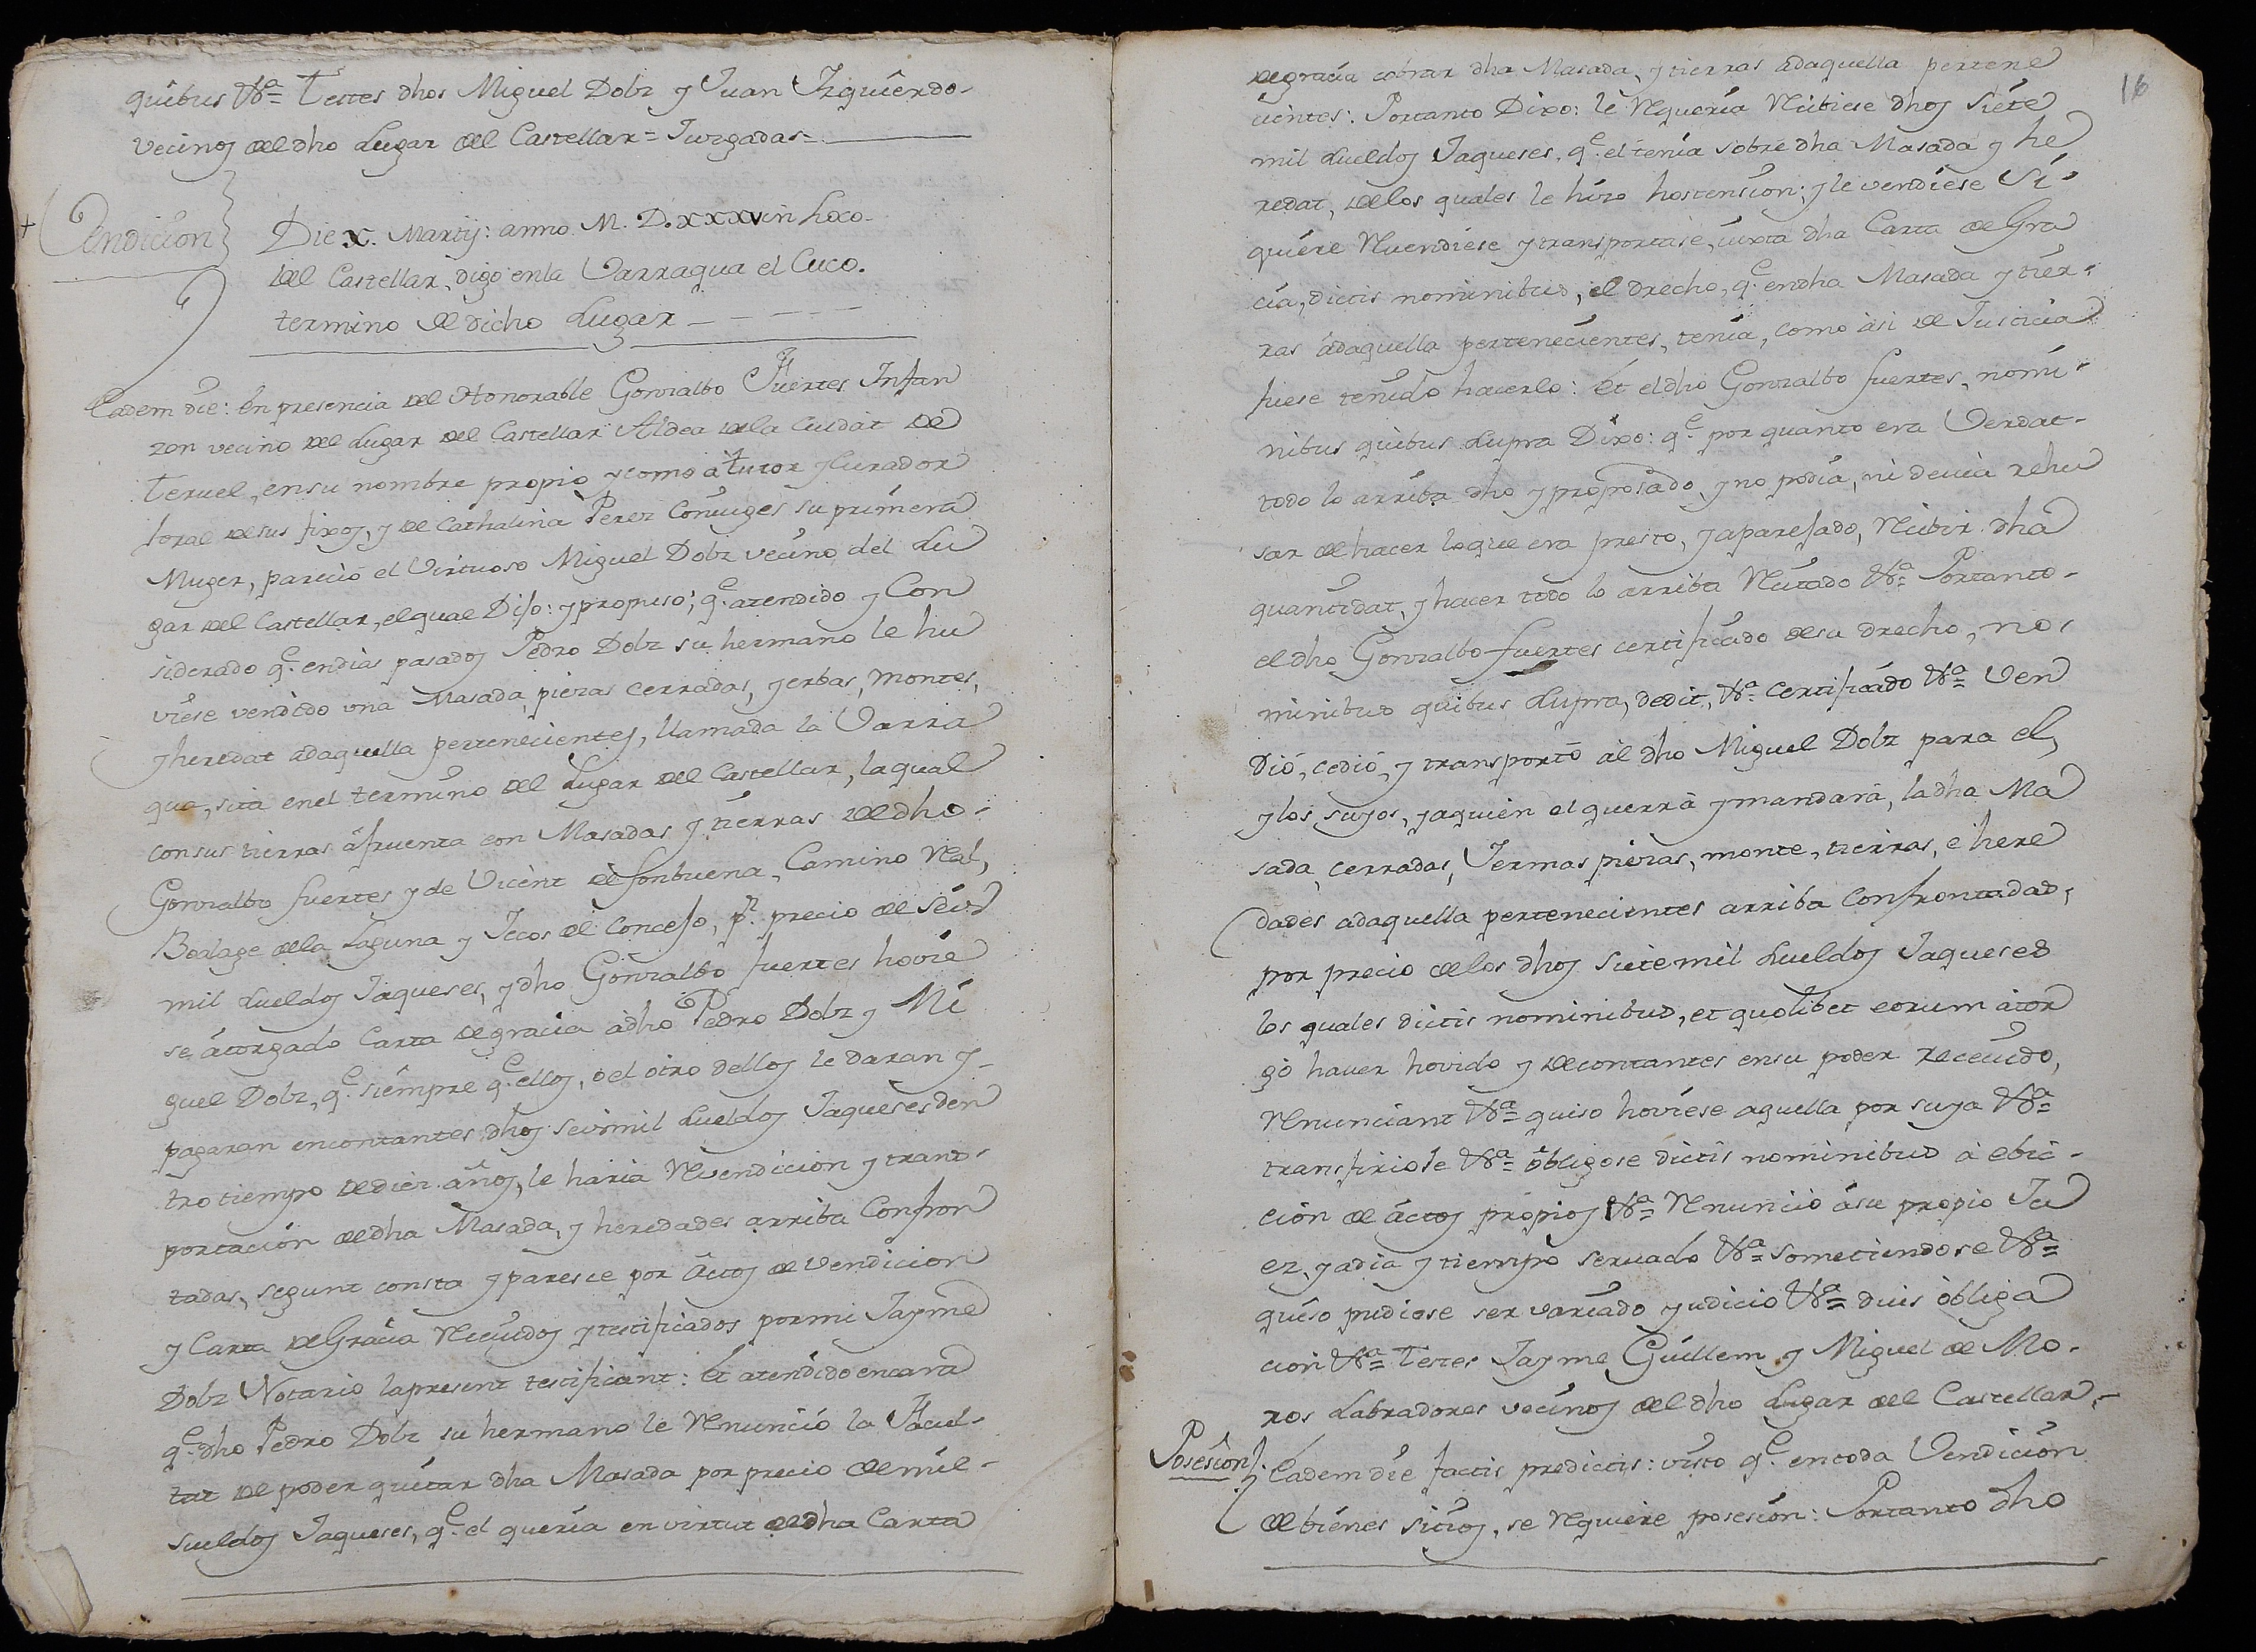 quibus &ª= Testes dhos Miguel Dolz y Juan Yzquierdo-
vecinos del dho Lugar del Castellar= Juzgadas=
+ Vendicion
Die X. Martij: anno M.D.XXXV in Loco-
del Castellar, digo en la Varraqua el Cuco.
termino de dicho Lugar - - - - -
Eadem die: En presencia del Honorable Gonzalbo Fuertes Infan
zon vecino del Lugar del Castellar Aldea de la Ciudat de
Teruel, en su nombre propio y como à tutor y Curador
foral de sus fixos, y de Cathalina Perez Conjuges su primera
Muger, pareció el Virtuoso Miguel Dolz vecino del Lu
gar del Castellar, el qual Dixo: y propuso; qe. atendido y Con
siderado qe. en dias pasados Pedro Dolz su hermano le hu
viese vendido una Masada, piezas cerradas, yerbas, montes,
y heredat adaquella pertenecientes, llamada la Varra
qua, sita en el termino del Lugar del Castellar, la qual
con sus tierras afruenta con Masadas y tierras del dho-
Gonzalbo fuertes y de Vicent de fonbuena, Camino Real,
Boalage de la Laguna y Jecos del Concejo, pr. precio de Seis
mil Sueldos Jaqueses, y dho Gonzalbo fuertes hovie
se atorgado Carta de gracia à dho Pedro Dolz y Mi
guel Dolz, qe. siempre qe. ellos, o el otro dellos le daran y-
pagaran encontantes dhos seismil Sueldos Jaqueses den
tro tiempo de diez años, le haria Revendicion y trans-
portacion de dha Masada, y heredades arriba Confron
tadas, segunt consta y paresce por actos de Vendicion
y Carta de Gracia Recevidos y testificados por mi Jayme
Dolz Notario la present testificant: Et atendido encara
qe. dho Pedro Dolz su hermano le Renunció la Facul-
tat de poder quitar dha Masada por precio de mil-
sueldos Jaqueses, qe. el queria en virtut de dha Carta
16
de gracia cobrar dha Masada, y tierras adaquella pertene
cientes: Portanto Dixo: le Requeria Recibiese dhos Siete
mil Sueldos Jaqueses, qe. el tenia sobre dha Masada y he
redat, de los quales le hizo hostension; y le vendiese Si-
quiere Revendiese y transportase, juxta dha Carta de Gra
cia, dictis nominibus, el drecho, qe. en dha Masada y tier-
ras àdaquella pertenecientes, tenia, como asi de Justicia
fuese tenido hacerlo: Et el dho Gonzalbo fuertes, nomi-
nibus quibus Supra Dixo: qe. por quanto era Verdat-
todo lo arriba dho y proposado, y no podia, ni devia rehu
sar de hacer lo que era presto, y aparejado, Recibir dha
quantidat, y hacer todo lo arriba Recitado &ª= Portanto-
el dho Gonzalbo fuertes certificado de su drecho, no-
minibus quibus Supra, dedit, &ª= certificado &ª= Ven
dió, cedió, y transportó al dho Miguel Dolz para el,
y los suyos, y aquien el querrà y mandarà, la dha Ma
sada, cerradas, Yermas piezas, monte, tierras, e here
dades adaquella pertenecientes arriba Confrontadas,
por precio de los dhos Siete mil Sueldos Jaqueses
los quales dictis nominibus, et quolibet eorum ator
gó haver hovido y de contantes en su poder recevido,
Renunciant &ª= quiso hoviese aquella por suya &ª=
transfiriole &ª= obligose dictis nominibus à evic-
cion de actos propios &ª= Renunció à su propio Ju
ez, y a dia y tiempo servado &ª= sometiendose &ª=
quiso pudiese ser variado judicio &ª= dius obliga
cion &ª= Testes Jayme Guillem y Miguel de Mo-
ros Labradores vecinos del dho Lugar del Castellar-
Posesion
Eadem die factis predictis: visto qe. en toda Vendicion
de bienes sitios, se Requiere posesion: Portanto dho